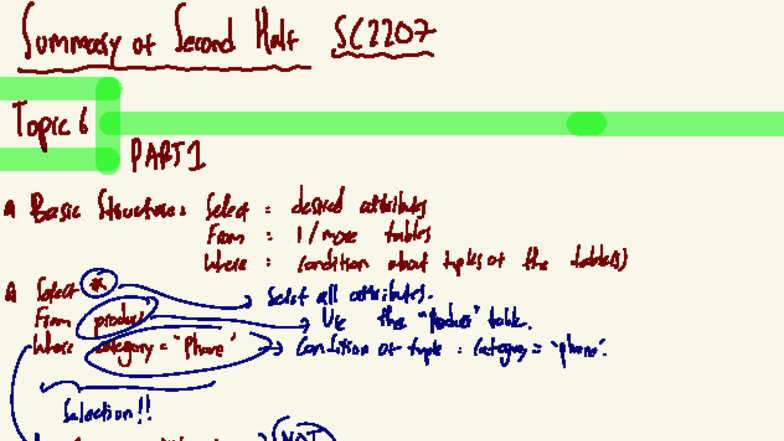 Summary of Second Half SC2207
Topic 6
PART 1
Basic Structure: Select : desired attributes
From : 1/more tables
Where : condition about tuples of the table(s)
Select * → Select all attributes.
From product → Use the "Product" table.
Where category = "Phone" → Condition of tuple : category = 'phone'.
Selection!!
NOT